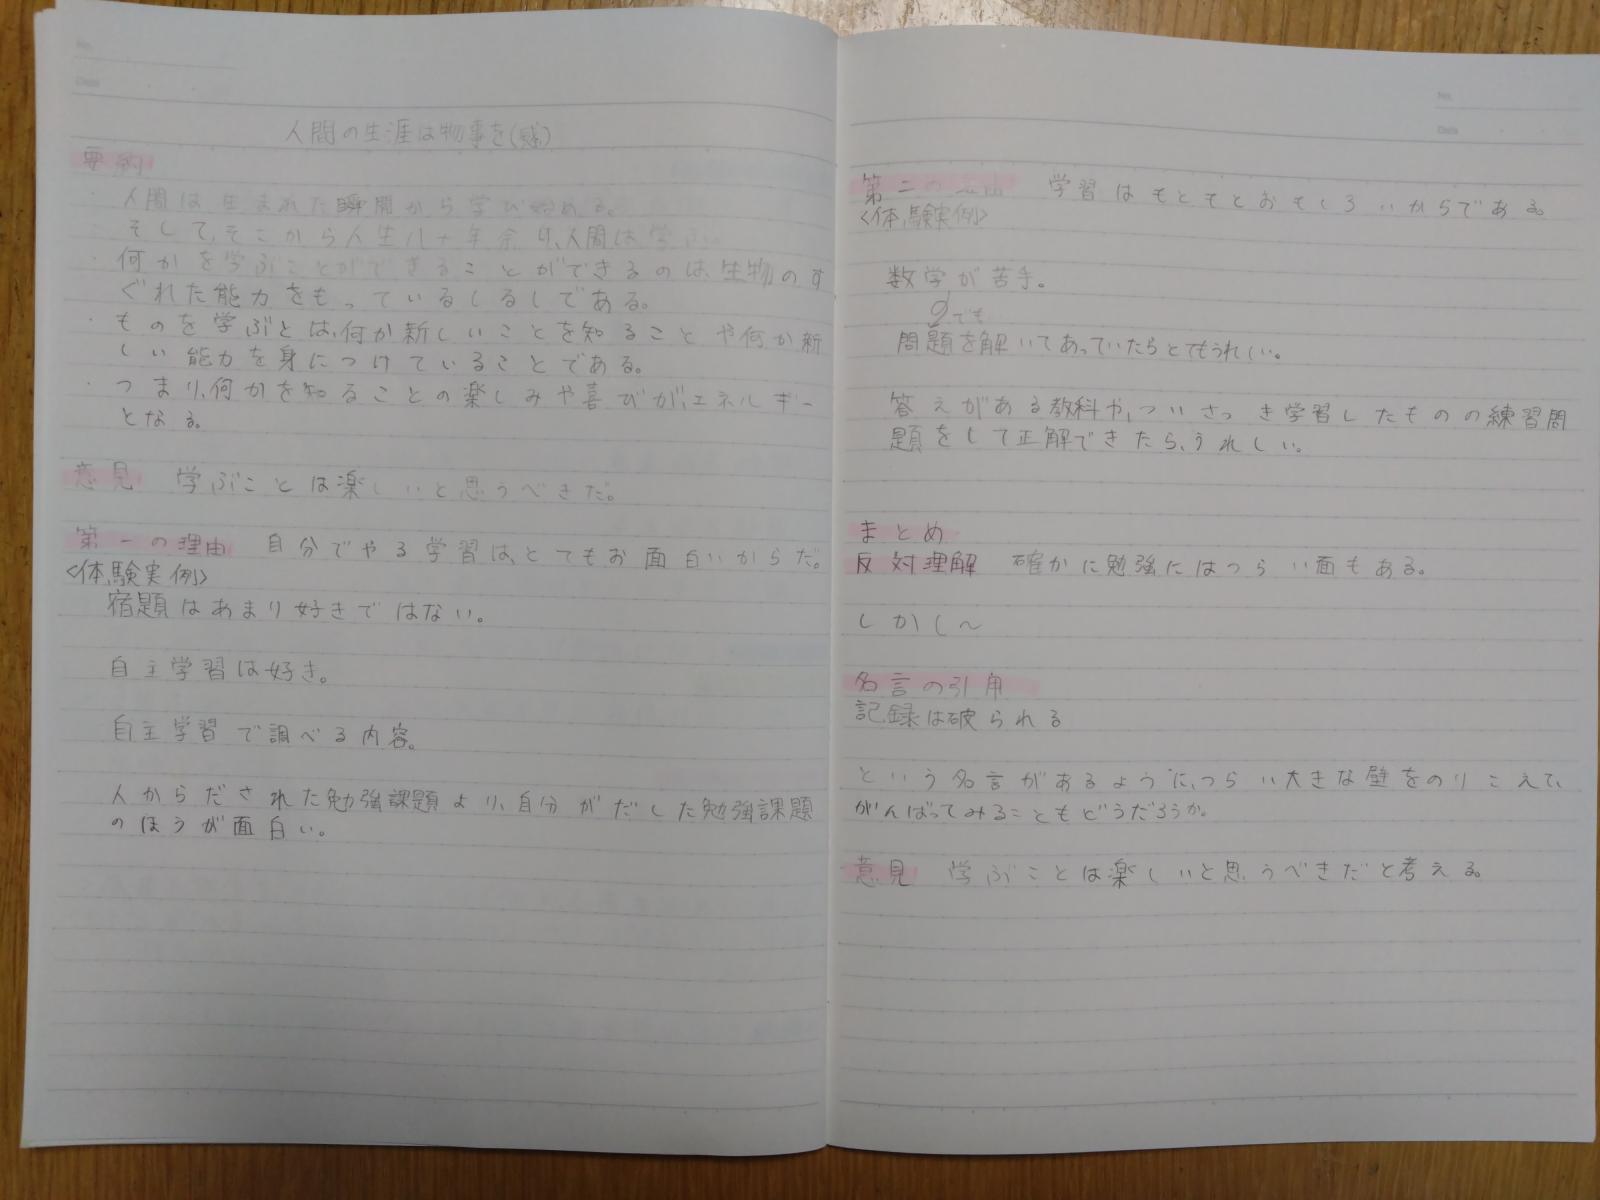 No.
Date
人間の生涯は物事を(感)
要約
・人間は生まれた瞬間から学び始める。
そして、そこから人生八十年余り、人間は学ぶ。
・何かを学ぶことができることができるのは、生物のす
ぐれた能力をもっているしるしである。
・ものを学ぶとは、何か新しいことを知ることや何か新
しい能力を身につけていることである。
・つまり、何かを知ることの楽しみや喜びが、エネルギー
となる。
意見 学ぶことは楽しいと思うべきだ。
第一の理由 自分でやる学習は、とてもお面白いからだ。
<体験実例>
宿題はあまり好きではない。
自主学習は好き。
自主学習で調べる内容。
人からだされた勉強課題より、自分がだした勉強課題
のほうが面白い。
No.
Date
第二の理由 学習はもともとおもしろいからである。
<体験実例>
数学が苦手。
でも
問題を解いてあっていたらとてもうれしい。
答えがある教科や、ついさっき学習したものの練習問
題をして正解できたら、うれしい。
まとめ
反対理解 確かに勉強にはつらい面もある。
しかし～
名言の引用
記録は破られる
という名言があるように、つらい大きな壁をのりこえて、
がんばってみることもどうだろうか。
意見 学ぶことは楽しいと思うべきだと考える。